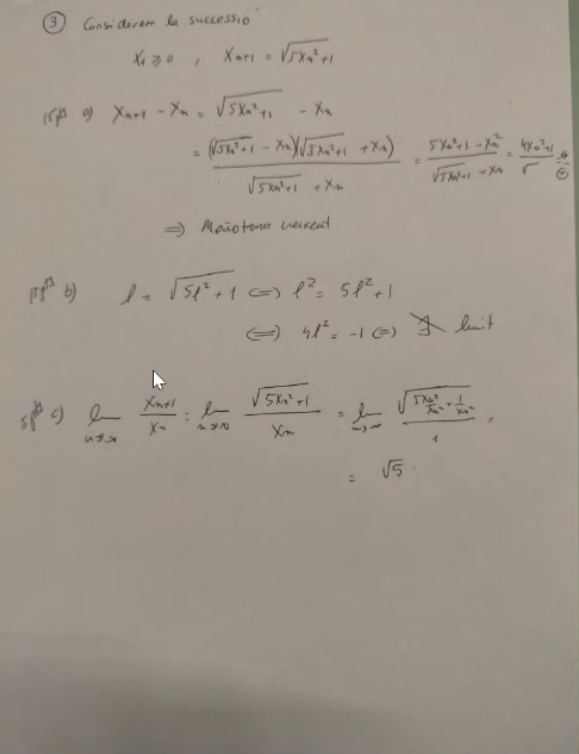 ③ Considerem la successió
x₁ ≥ 0 , xₙ₊₁ = √(5xₙ²+1)
15pts a) xₙ₊₁ - xₙ = √(5xₙ²+1) - xₙ
= (√(5xₙ²+1) - xₙ)(√(5xₙ²+1) + xₙ) / (√(5xₙ²+1) + xₙ) = (5xₙ²+1 - xₙ²) / (√(5xₙ²+1) + xₙ) = (4xₙ²+1) / √
⇒ Monòtona creixent
15pts b) l = √(5l²+1) ⇔ l² = 5l²+1
⇔ 4l² = -1 ⇔ ∄ límit
5pts c) lim n→∞ xₙ₊₁/xₙ = lim n→∞ √(5xₙ²+1)/xₙ = lim n→∞ √(5xₙ²/xₙ² + 1/xₙ²)/1 =
= √5.